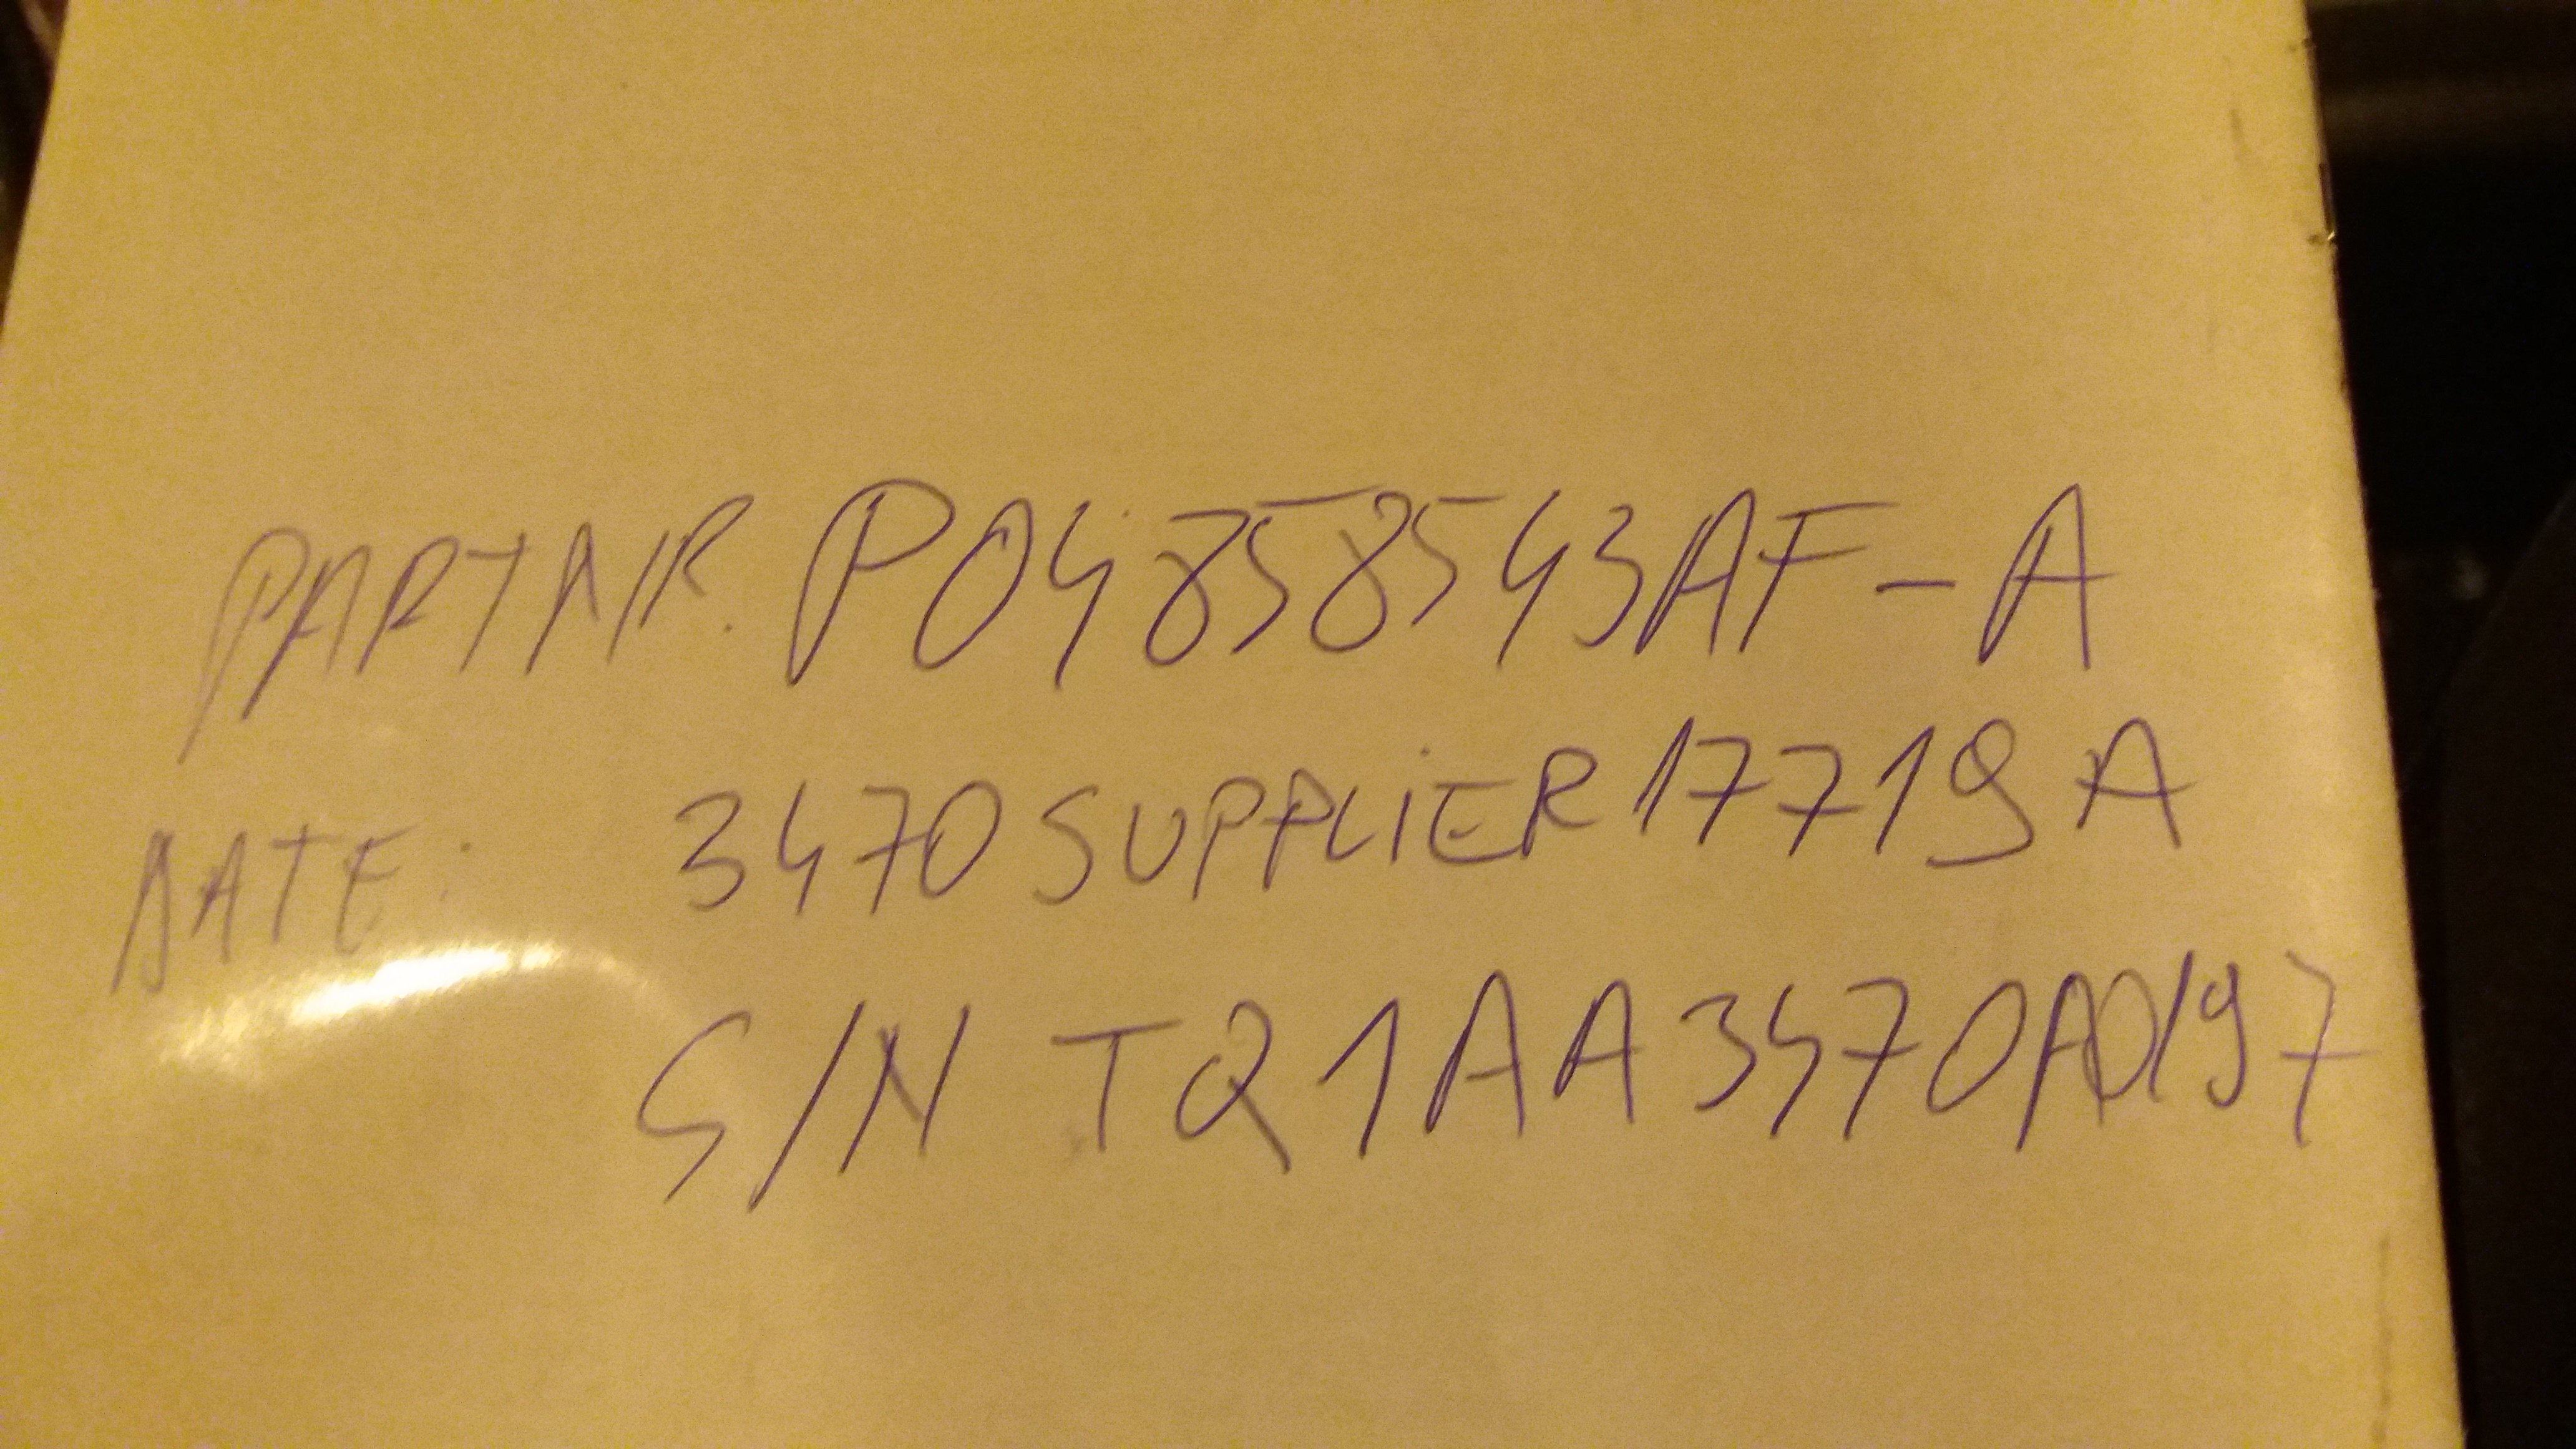 PARTNR. P04858543AF-A
DATE: 3470 SUPPLIER 17719A
S/N TQ1AA3470A0197